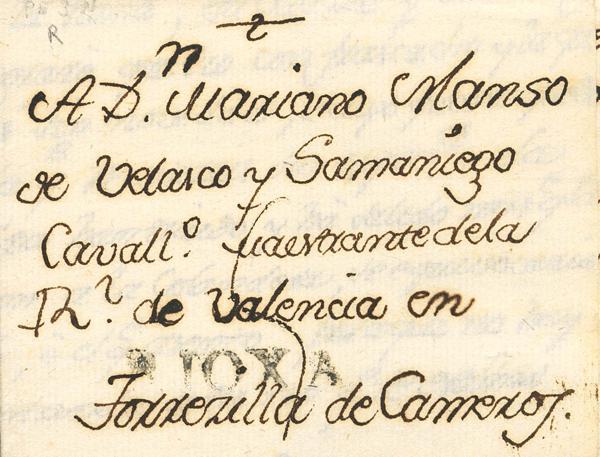 2
A D.ⁿ Mariano Manso
de Velasco y Samaniego
Cavall.º Maestrante de la
R.ˡ de Valencia en
RIOXA
Torrezilla de Cameros.